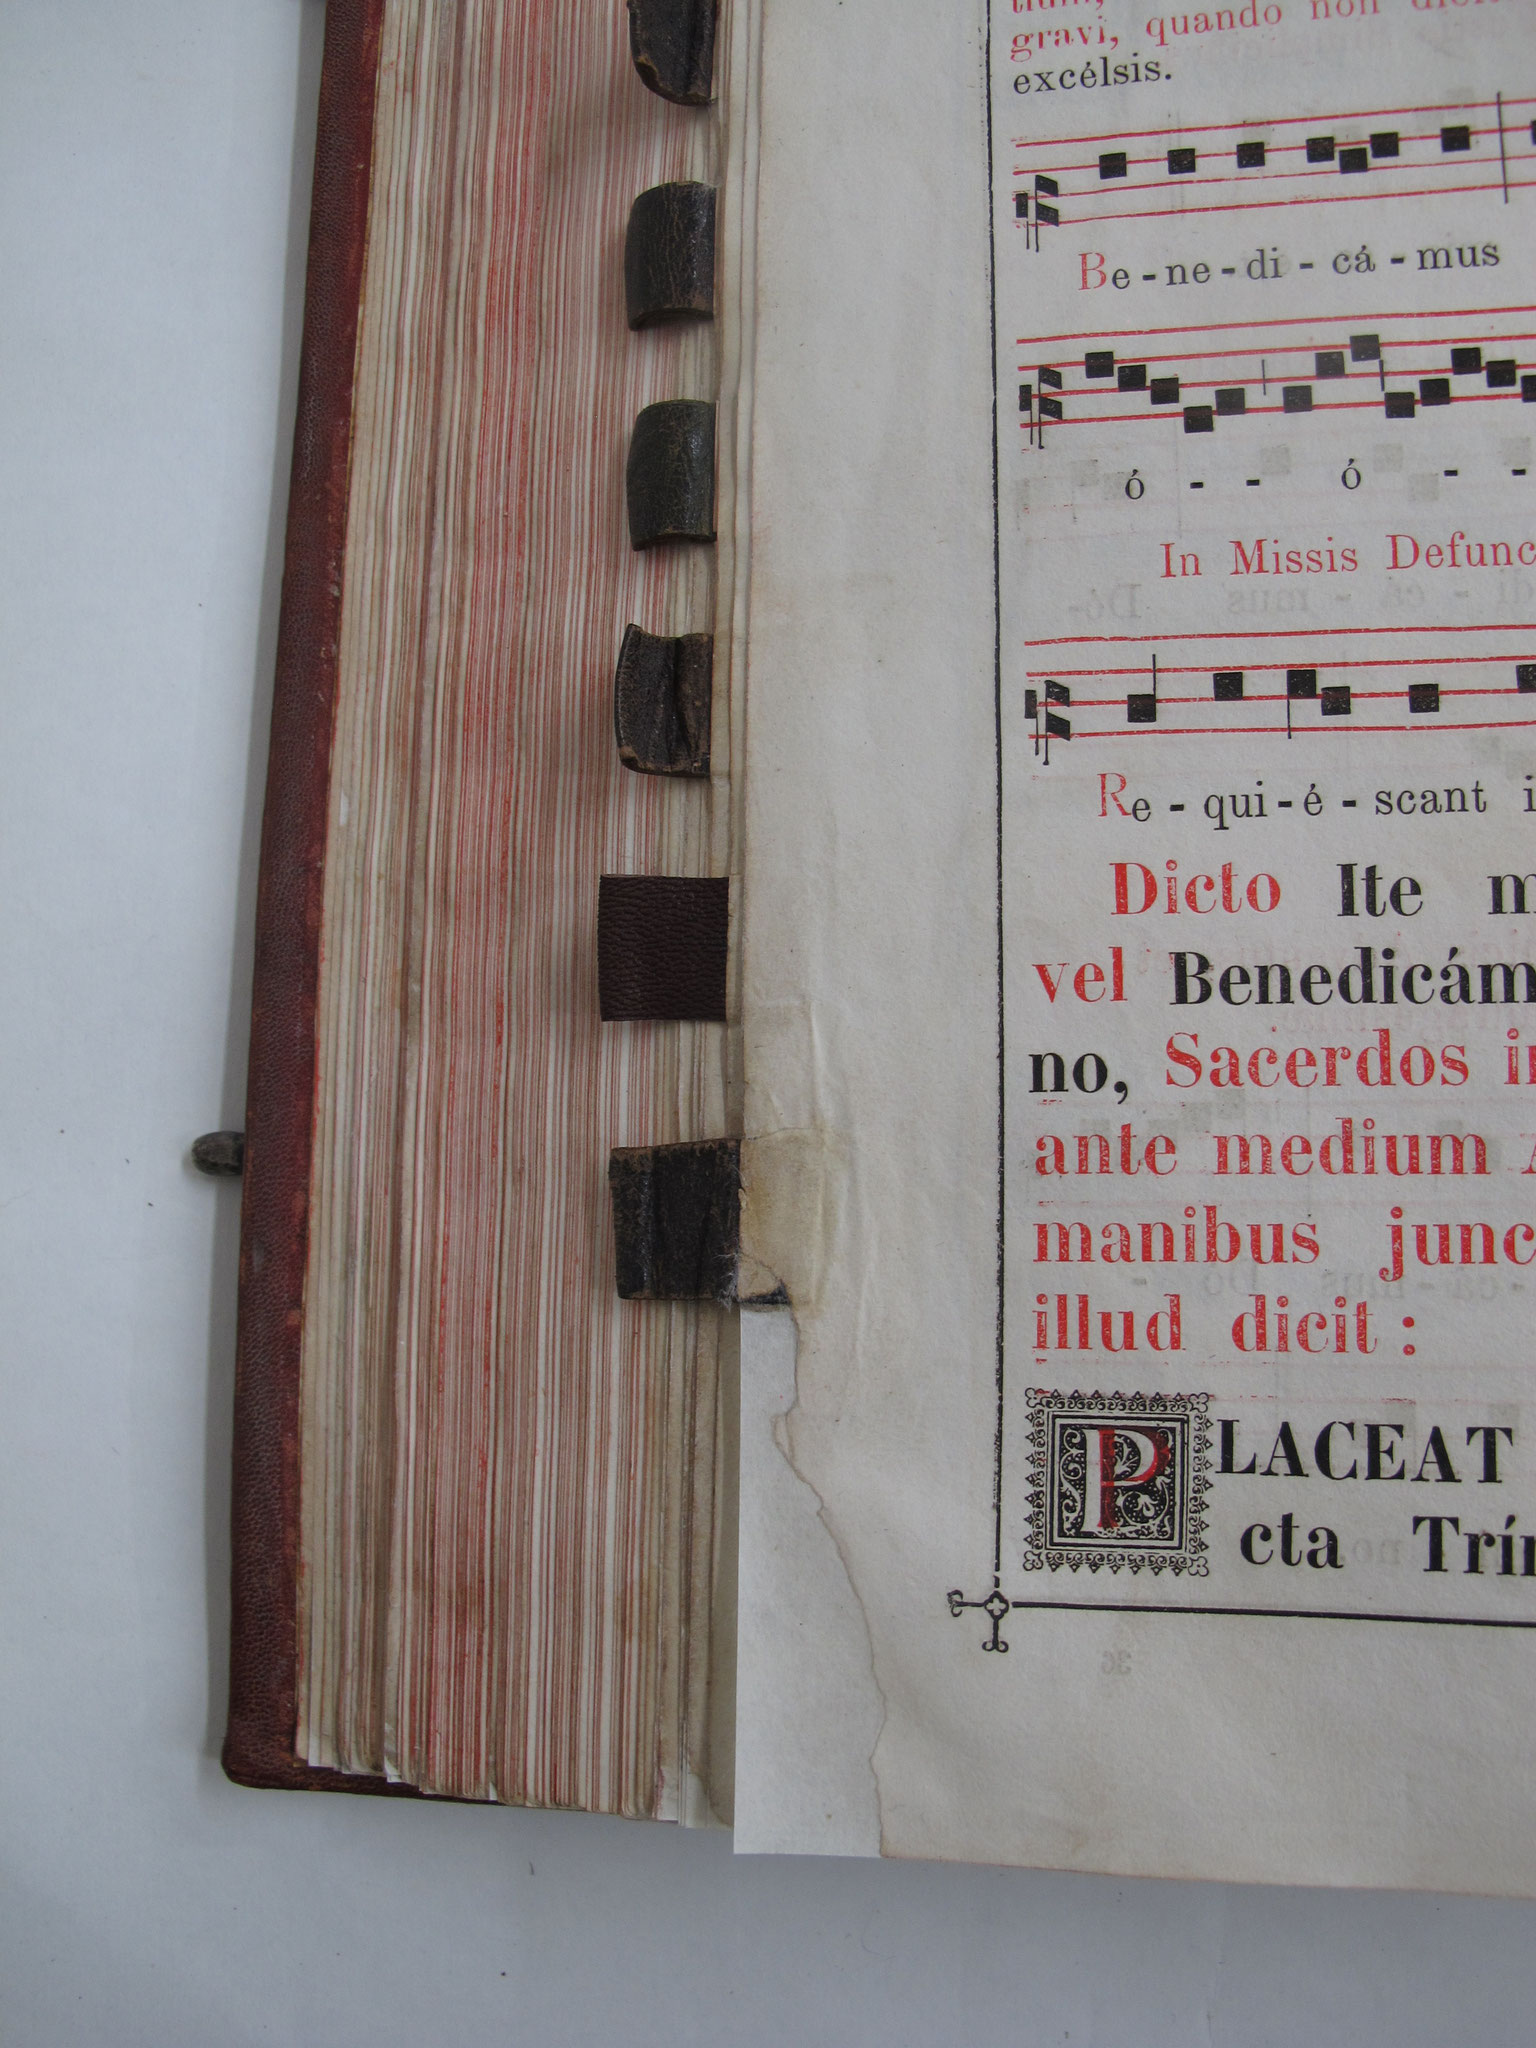 gravi, quando non
excélsis.
Be - ne - di - cá - mus
ó - - ó - -
In Missis Defunc
Re - qui - é - scant i
Dicto Ite m
vel Benedicám
no, Sacerdos in
ante medium A
manibus junc
illud dicit :
PLACEAT
cta Trín